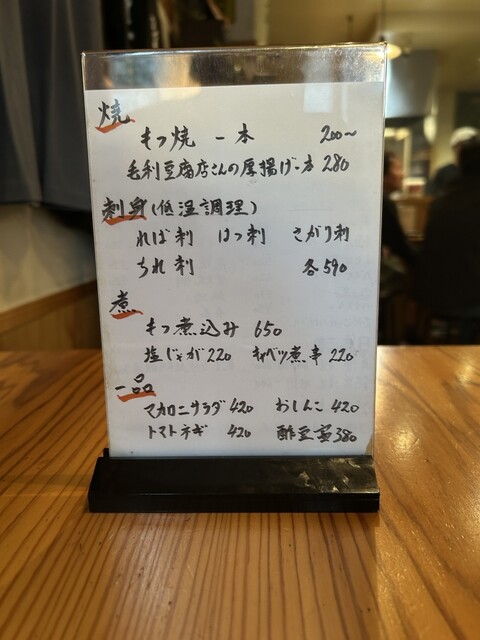 焼
もつ焼 一本 200〜
毛利豆腐店さんの厚揚げ一本 280
刺身(低温調理)
れば刺 はつ刺 さがり刺
ちれ刺 各590
煮
もつ煮込み 650
塩じゃが 220 キャベツ煮串 220
一品
マカロニサラダ 420 おしんこ 420
トマトネギ 420 酢豆蜜 380